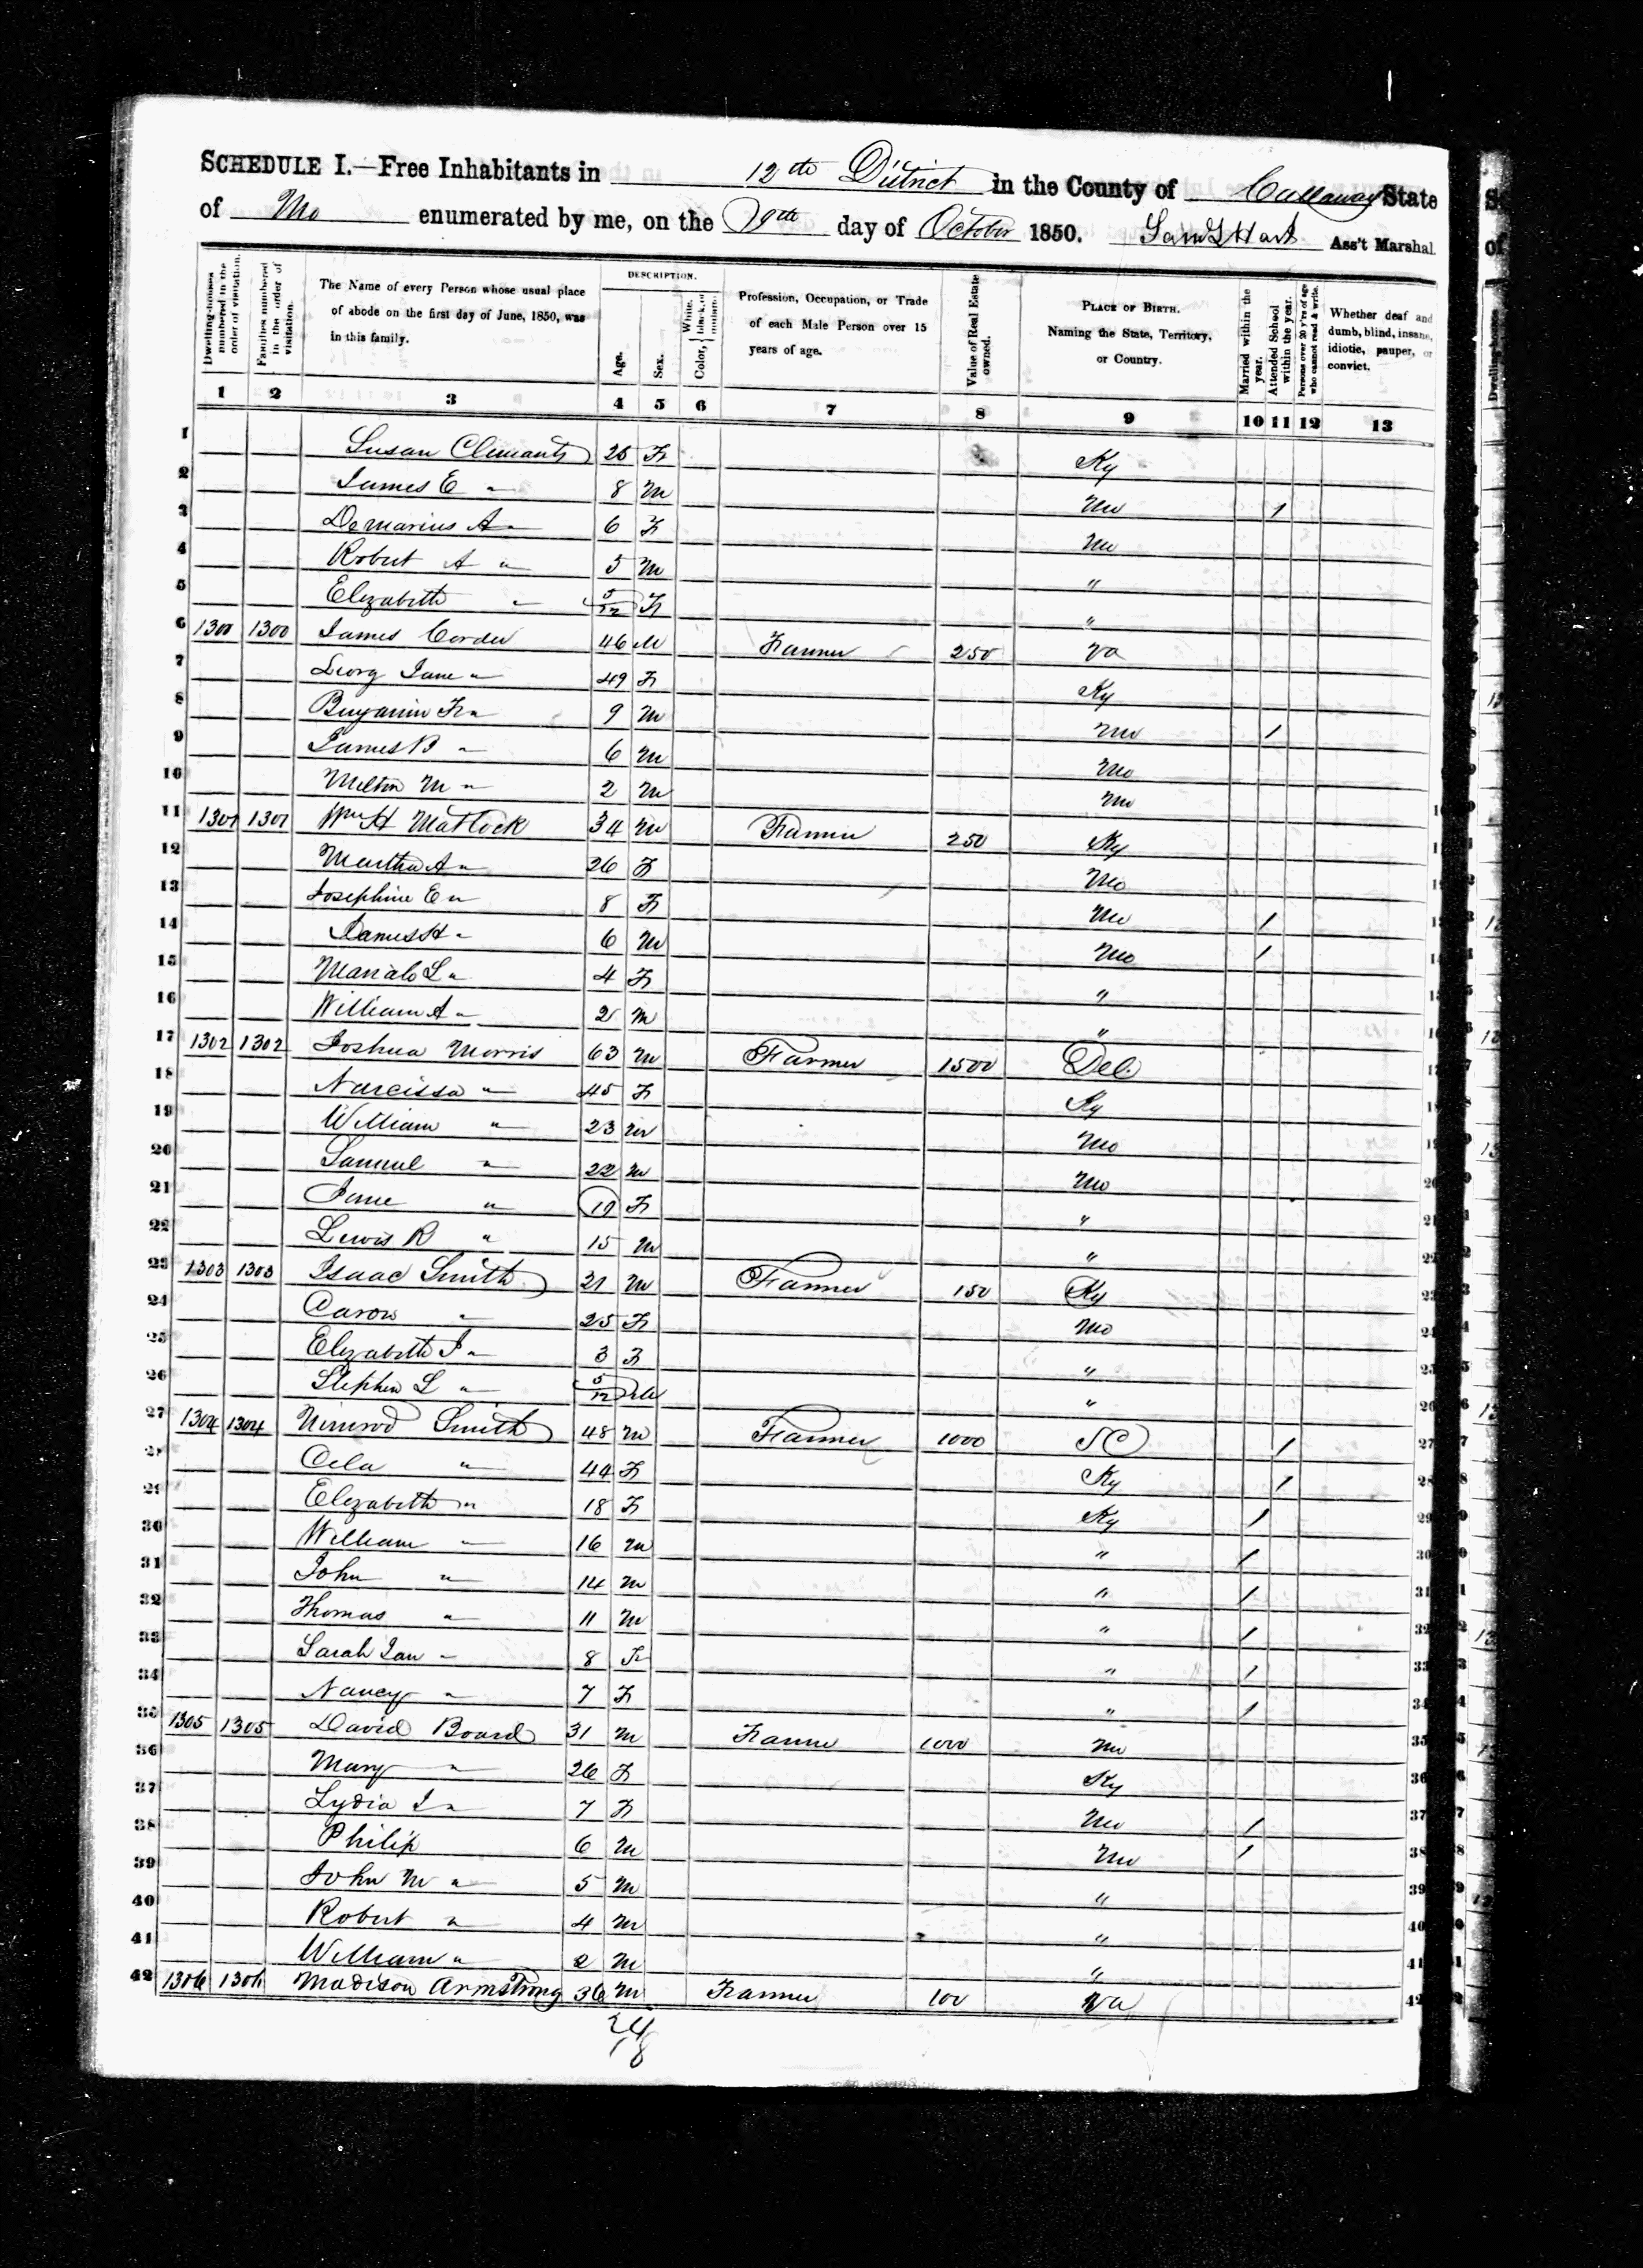 SCHEDULE I.—Free Inhabitants in 12th District in the County of Callaway State
of Mo enumerated by me, on the 9th day of October 1850. Saml Hart Ass't Marshal
Dwelling-houses numbered in the order of visitation.
Families numbered in the order of visitation.
The Name of every Person whose usual place of abode on the first day of June, 1850, was in this family.
DESCRIPTION.
Age.
Sex.
Color, White, black, or mulatto.
Profession, Occupation, or Trade of each Male Person over 15 years of age.
Value of Real Estate owned.
PLACE OF BIRTH. Naming the State, Territory, or Country.
Married within the year.
Attended School within the year.
Persons over 20 y'rs of age who cannot read & write.
Whether deaf and dumb, blind, insane, idiotic, pauper, or convict.
1 2 3 4 5 6 7 8 9 10 11 12 13
1 Susan Clemants 25 F Ky
2 James E " 8 M Mo 1
3 Demarius A " 6 F Mo
4 Robert A " 5 M "
5 Elizabeth " 5/12 F "
6 1300 1300 James Corder 46 M Farmer 250 Va
7 Georg Jane " 49 F Ky
8 Benjamin F " 9 M Mo 1
9 James B " 6 M Mo
10 Milton M " 2 M Mo
11 1301 1301 Wm H Matlock 34 M Farmer 250 Ky
12 Martha A " 26 F Mo
13 Josephine E " 8 F Mo 1
14 James H " 6 M Mo 1
15 Mariah L " 4 F "
16 William A " 2 M "
17 1302 1302 Joshua Morris 63 M Farmer 1500 Del
18 Narcissa " 45 F Ky
19 William " 23 M Mo
20 Samuel " 22 M Mo
21 Jane " 19 F "
22 Lewis R " 15 M "
23 1303 1303 Isaac Smith 21 M Farmer 150 Ky
24 " 25 F Mo
25 Elizabeth J " 3 F "
26 Stephen L " 5/12 M "
27 1304 1304 Nimrod Smith 48 M Farmer 1000 SC 1
28 Cela " 44 F Ky 1
29 Elizabeth " 18 F Ky 1
30 William " 16 M " 1
31 John " 14 M " 1
32 Thomas " 11 M " 1
33 Sarah Jan " 8 F " 1
34 Nancy " 7 F " 1
35 1305 1305 David Board 31 M Farmer 1000 Mo
36 Mary " 26 F Ky
37 Lydia J " 7 F Mo 1
38 Philip 6 M Mo 1
39 John M " 5 M "
40 Robert " 4 M "
41 William " 2 M "
42 1306 1306 Madison Armstrong 36 M Farmer 100 Va
24
18